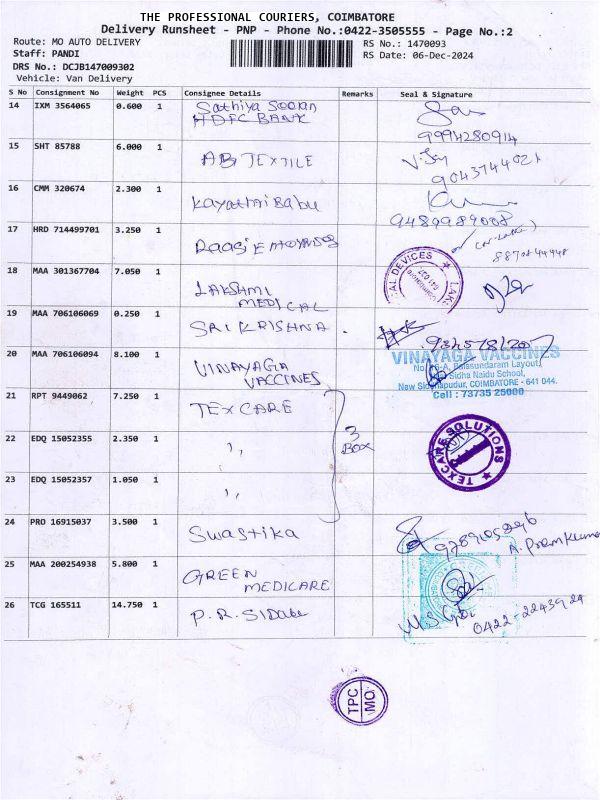 THE PROFESSIONAL COURIERS, COIMBATORE
Delivery Runsheet - PNP - Phone No.:0422-3505555 - Page No.:2
Route: MO AUTO DELIVERY
RS No.: 1470093
Staff: PANDI
RS Date: 06-Dec-2024
DRS No.: DCJB147009302
Vehicle: Van Delivery
S No Consignment No Weight PCS Consignee Details Remarks Seal & Signature
14 IXM 3564065 0.600 1 Sathiya
HDFC BANK
9994280914
15 SHT 85788 6.000 1 TEXTILE
9043744021
16 CMM 320674 2.300 1 Kayathri Babu
9489989008
17 HRD 714499701 3.250 1
18 MAA 301367704 7.050 1 LAKSHMI
MEDICAL
AL DEVICES ★ LAKS
19 MAA 706106069 0.250 1 SRI KRISHNA
20 MAA 706106094 8.100 1 VINAYAGA
VACCINES
VINAYAGA VACCINES
Balasundaram Layout,
Sidha Naidu School,
New Sidhapudur, COIMBATORE - 641 044.
Cell : 73735 25000
21 RPT 9449062 7.250 1 TEXCARE
22 EDQ 15052355 2.350 1 ,, 3
BOX
★ TEXCARE SOLUTIONS
23 EDQ 15052357 1.050 1 ,,
24 PRO 16915037 3.500 1 Swastika
A. Prem Kumar
25 MAA 200254938 5.800 1 GREEN
MEDICARE
26 TCG 165511 14.750 1 P.R.
0422-2243924
TPC
MO